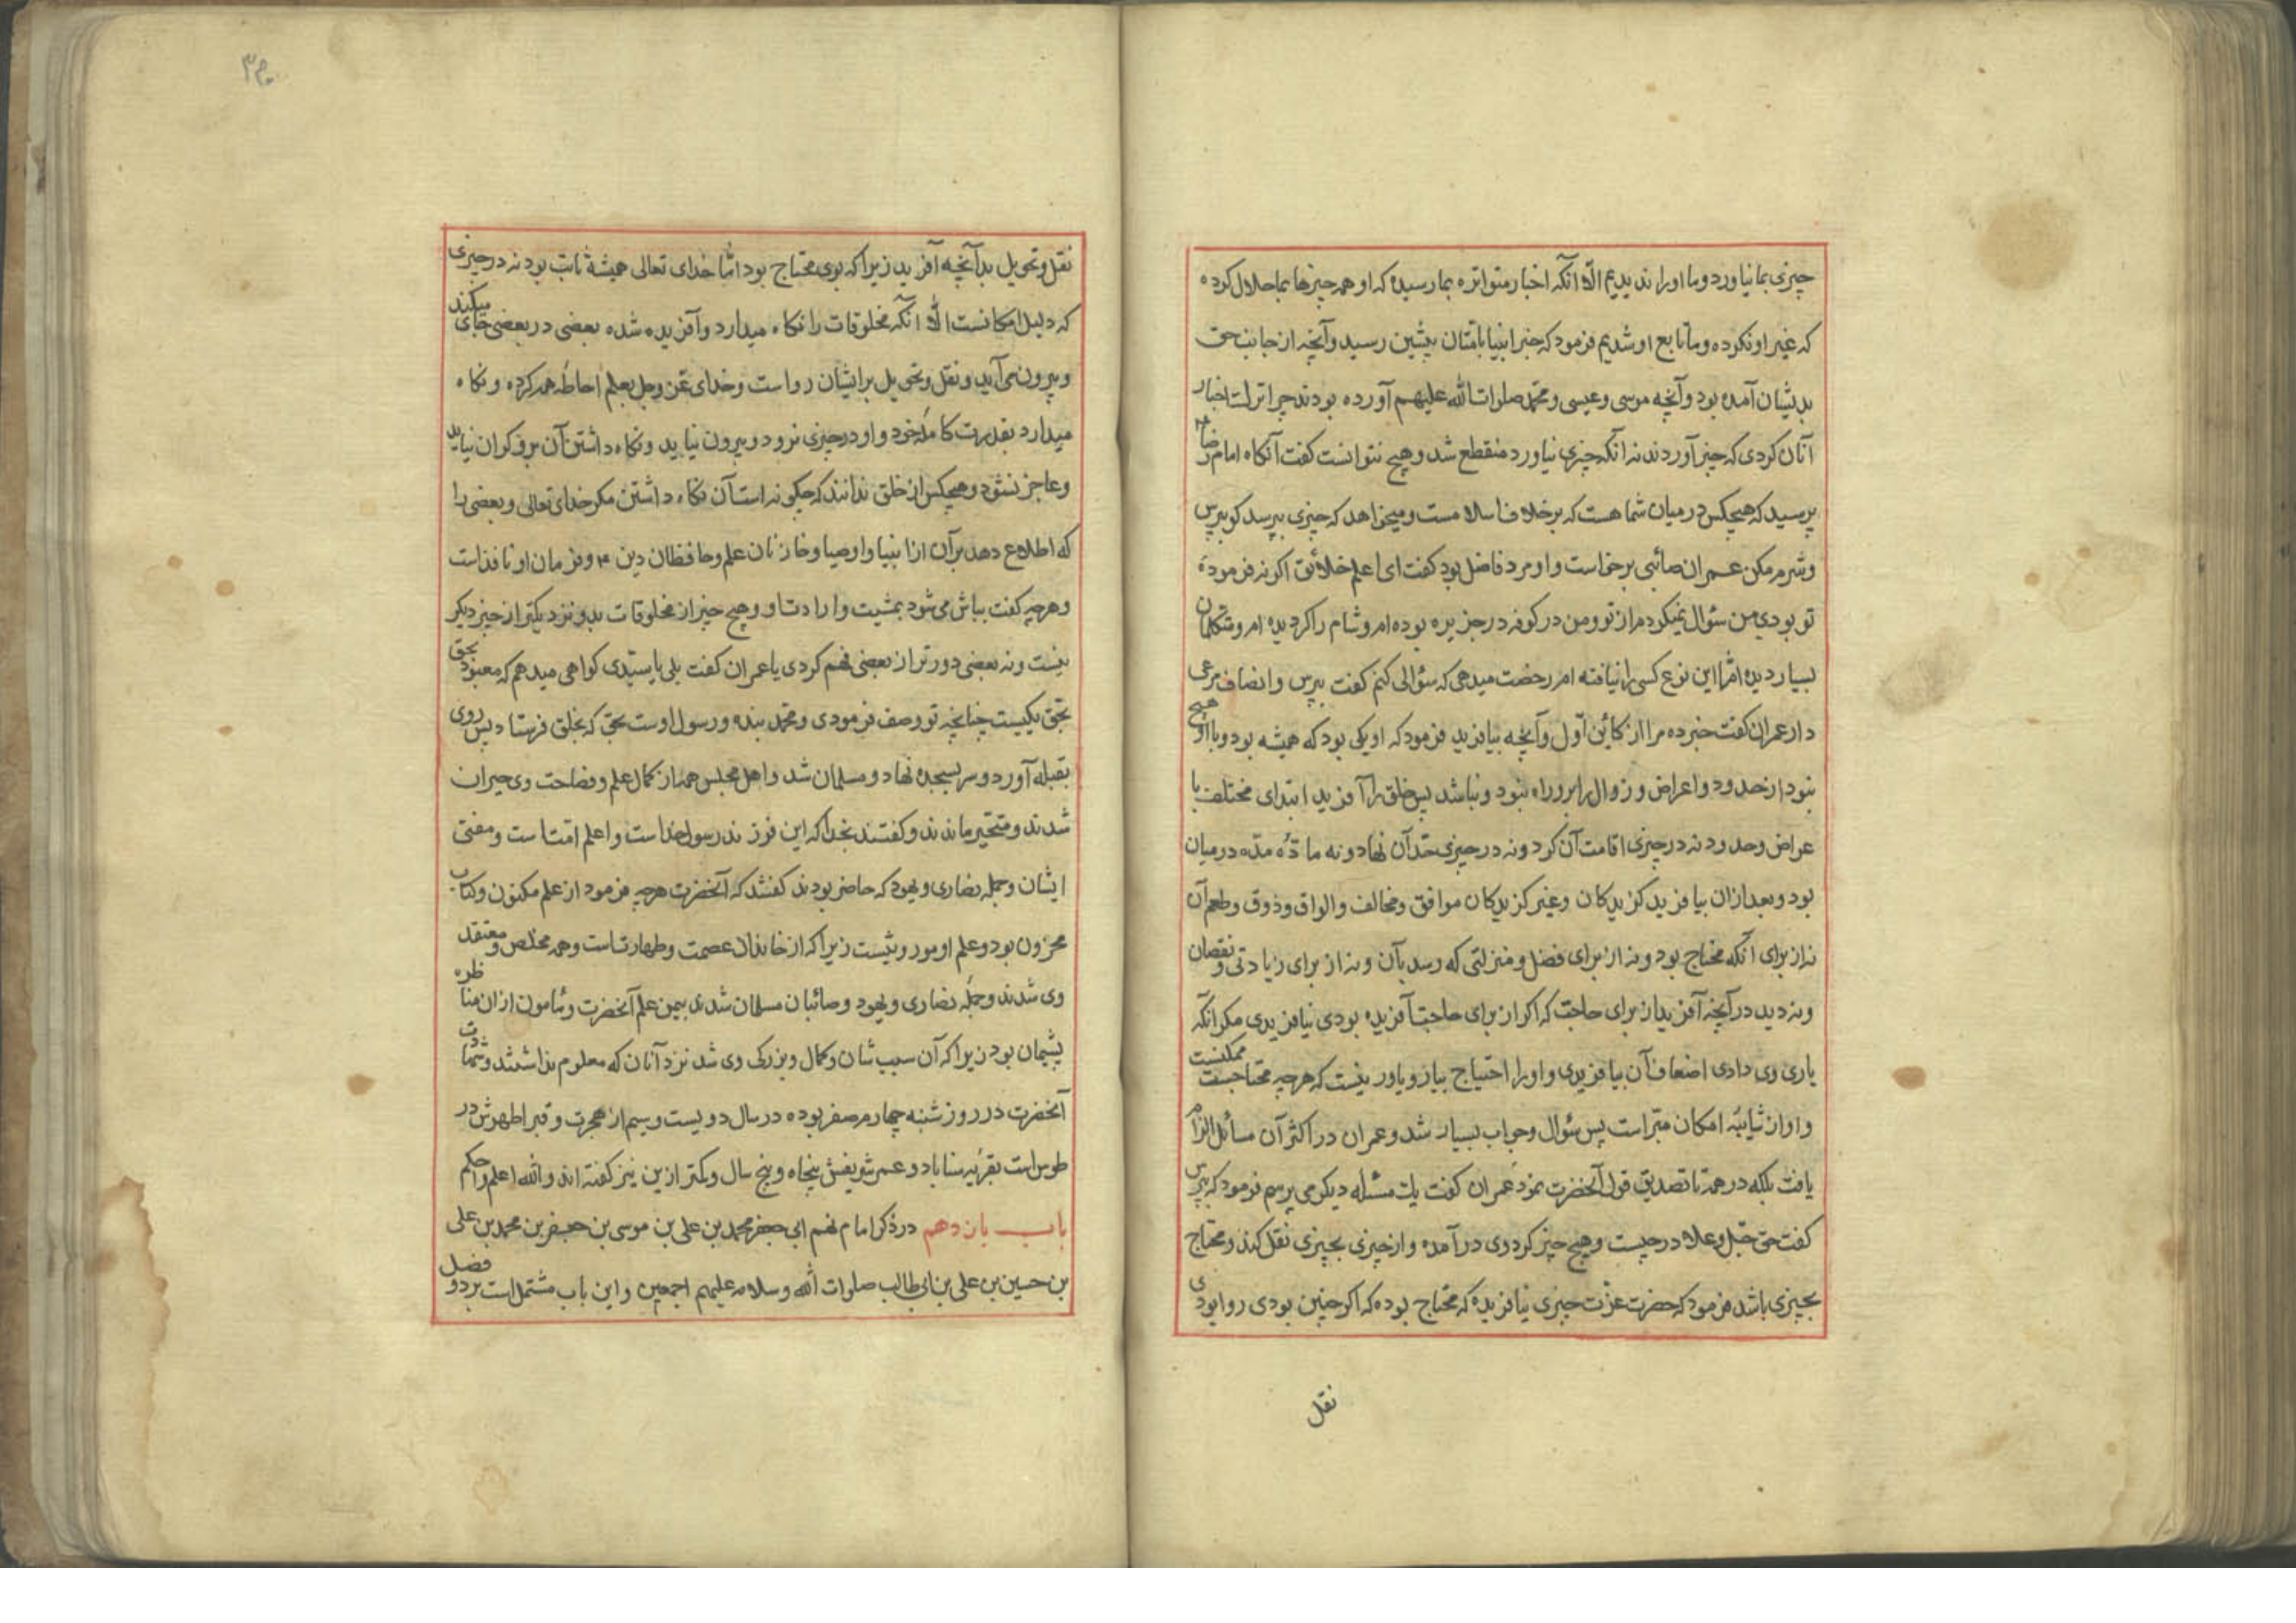 چیزی بما نیاورد و ما او را ندیدیم الّا آنکه اخبار متواتره بما رسیده که او همه چیزها بما حلال کرده
که غیر او نکرده و ما تابع او شدیم فرمود که خبر انبیا بامّتان پیشین رسید و آنچه از جانب حق
بدیشان آمده بود و آنچه موسی و عیسی و محمّد صلوات الله علیهم آورده بودند چرا ترک اخبار
آنان کردی که چیز آوردند نه آنکه چیزی نیاورد منقطع شد و هیچ نتوانست کفت آنکاه امام رضا
پرسید که هیچکس در میان شما هست که برخلاف اسلامست و میخواهد که چیزی بپرسد کو بپرس
و شرم مکن عمران صائبی برخواست و او مرد فاضل بود کفت ای اعلم خلائق اکر نه فرموده
تو بودی من سئوال نمیکردم از تو و من در کوفه در جزیره بوده ام و شام را کردیده ام و متکلمان
بسیار دیده امّا این نوع کسی را نیافته ام رخصت میدهی که سئوالی کنم کفت بپرس و انصاف مرعی
دار عمران کفت خبر ده مرا از کاین اوّل و آنچه بیافرید فرمود که او یکی بود که همیشه بود و با او هیچ
نبود از حدود و اعراض و زوال را برو راه نبود و نباشد پس خلق را آفرید ابتدای مختلف با
عراض و حدود نه در چیزی اقامت آن کرد و نه در چیزی حدّ آن نهاد و نه مادّه مدّه در میان
بود و بعد از ان بیافرید کزیدکان و غیر کزیدکان موافق و مخالف و الوان و ذوق و طعم آن
نه از برای آنکه محتاج بود و نه از برای فضل و منزلتی که رسد بآن و نه از برای زیادتی و نقصان
و نه دید در آنچه آفرید از برای حاجت که اکر از برای حاجت آفریده بودی نیافریدی مکر آنکه
یاری وی دادی اضعاف آن بیافریدی و او را احتیاج بیار و یاور نیست که هرچه محتاجست ممکنست
و او از شایبه امکان مبرّاست پس سئوال و جواب بسیار شد و عمران در اکثر آن مسائل الزام
یافت بلکه در همه تا تصدیق قول آنحضرت نمود عمران کفت یک مسئله دیکر می پرسم فرمود که بپرس
کفت حق جّل و علا در چیست و هیچ چیز کرد وی در آمده و از چیزی بچیزی نقل کند و محتاج
بچیزی باشد فرمود که حضرت عزّت چیزی نیافریده که محتاج بوده که اکر چنین بودی روا بودی
نقل
۳۰م
نقل و تحویل بدآنچه آفرید زیرا که بوی محتاج بود امّا خدای تعالی همیشه ثابت بود نه در چیزی
که دلیل امکانست الّا آنکه مخلوقات را نکاه میدارد و آفریده شده بعضی در بعضی جای میکند
و بیرون می آید و نقل و تحویل بر ایشان رواست و خدای عزّ و جل بعلم احاطه همه کرده و نکاه
میدارد بقدرت کامله خود و او در چیزی نرود و بیرون نیاید و نکاه داشتن آن برو کران نیاید
و عاجز نشود و هیچکس از خلق ندانند که چکونه است آن نکاه داشتن مکر خدای تعالی و بعضی را
که اطلاع دهد بر آن از انبیا و اوصیا و خازنان علم و حافظان دین م و فرمان او نافذ است
و هرچه کفت بباش می شود بمشیت و ارادت او و هیچ چیز از مخلوقات بدو نزدیکتر از چیز دیکر
نیست و نه بعضی دورتر از بعضی فهم کردی یا عمران کفت بلی یا سیّدی کواهی میدهم که معبود بحق
بحق یکیست چنانچه تو وصف فرمودی و محمّد بنده و رسول اوست بحق که بخلق فرستاد پس روی
بقبله آورد و سر بسجده نهاد و مسلمان شد و اهل مجلس همه از کمال علم و فصاحت وی حیران
شدند و متحیر ماندند و کفتند بخدا که این فرزند رسول خداست و اعلم امّت است و مفتی
ایشان و جمله نصاری و یهود که حاضر بودند کفتند که آنحضرت هرچه فرمود از علم مکنون و کتاب
مخزون بود و علم او موروثیست زیرا که از خاندان عصمت و طهارتست و همه مخلص و معتقد
وی شدند و جمله نصاری و یهود و صائبان مسلمان شدند بیمن علم آنحضرت و مامون از ان مناظره
پشیمان بود زیرا که آن سبب شان و کمال و بزرکی وی شد نزد آنان که معلوم نداشتند و وفات
آنحضرت در روز شنبه چهارم صفر بوده در سال دویست و سیم از هجرت و قبر اطهرش در
طوس است بقریه سناباد و عمر شریفش پنجاه و پنج سال و کمتر ازین نیز کفته اند و الله اعلم و احکم
باب یازدهم در ذکر امام نهم ابی جعفر محمد بن علی بن موسی بن جعفر بن محمد بن علی
بن حسین بن علی بن ابی طالب صلوات الله و سلامه علیهم اجمعین و این باب مشتمل است بر دو فصل